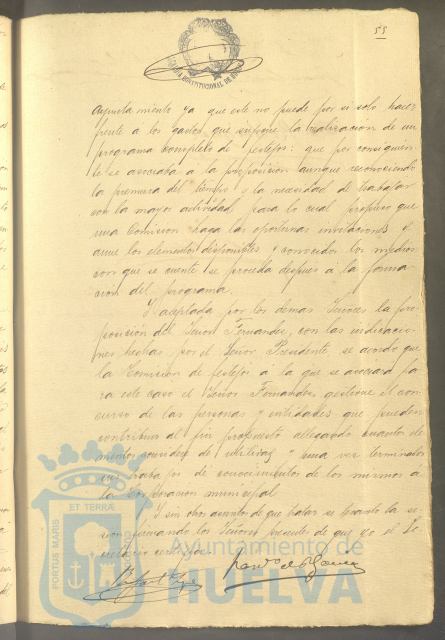 55
ALCALDIA CONSTITUCIONAL DE
Ayuntamiento ya que este no puede por si solo hacer
frente a los gastos que supone la realizacion de un
programa completo de festejos: que por consiguien-
te se asociaba a la proposicion aunque reconociendo
la premura del tiempo y la necesidad de trabajar
con la mayor actividad para lo cual propuso que
una Comision haga las oportunas invitaciones y
aune los elementos disponibles y conocidos los medios
con que se cuente se proceda despues á la forma-
cion del programa.
Y aceptada por los demas Señores la pro-
posición del Señor Fernandez, con las indicacio-
nes hechas por el Señor Presidente, se acordó que
la Comision de festejos á la que se asociará pa-
ra este caso el Señor Fernandez, gestione el con-
curso de las personas y entidades que puedan
contribuir al fin propuesto allegando cuantos ele-
mentos de utilidad y una vez terminados
sus trabajos dé conocimiento de los mismos á
la Corporacion municipal
Y sin otros asuntos de que tratar se levantó la se-
sion firmando los Señores presentes de que yo el Se-
cretario certifico
PORTUS MARIS
ET TERRÆ
Ayuntamiento de
HUELVA